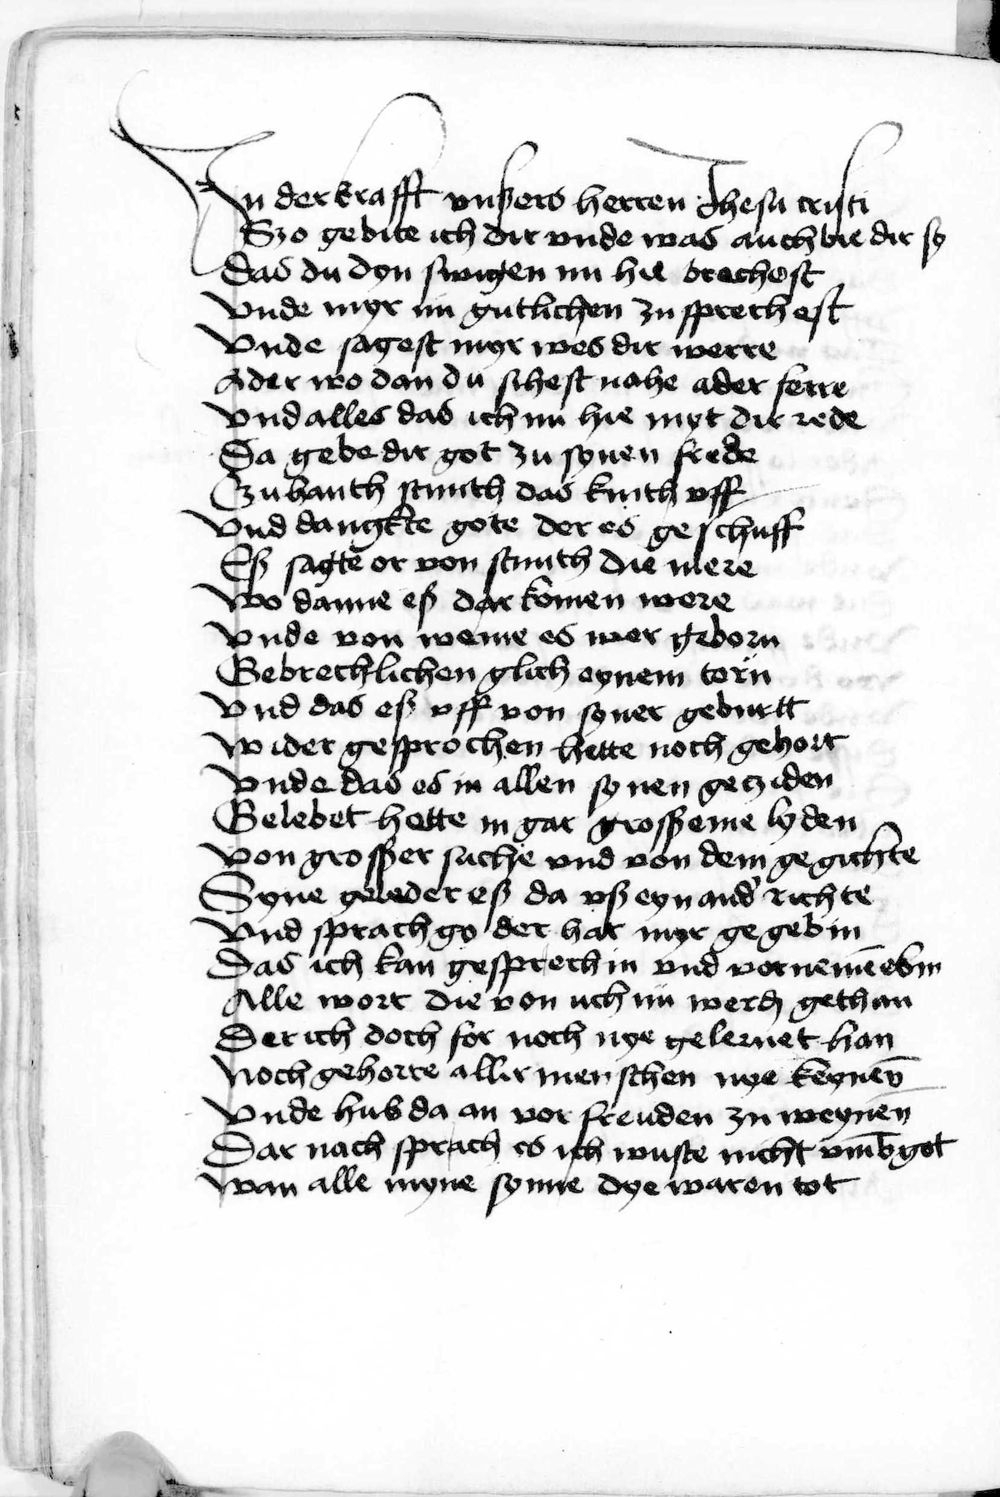 In der krafft vnßers herren Jhesu cristi
Szo gebite ich dir vnde was auch bie dir sy
Das du dyn swigen nu hie brechest
Vnde myr nu gutlichen zu sprechest
Vnde sagest myr wes dir werre
Ader wo dan du sihest nahe ader ferre
Vnd alles das ich nu hie myt dir rede
Da gebe dir got zu synen frede
Czuhanth stunth das kinth vff
Vnd dangkte gote der es geschuff
Eß sagte or von stunth die mere
Wo danne eß dar komen were
Vnde von weme es wer geborn
Gebrechlichen glich eynem torn
Vnd das eß vff von syner geburtt
Wider gesprochen hette noch gehort
Vnde das es in allen synen geziden
Gelebet hette in gar grosßeme lyden
Von grosßer suche vnd von dem gegichte
Syne geleder eß da vß eynand' richte
Vnd sprach go der hat myr gegebin
Das ich kan gesprechin vnd vornemē ebin
Alle wort die von uch nu werdn gethan
Der ich doch for noch nye gelernet han
Noch gehorte allir menschen nye keynen
Vnde hub da an vor freuden zu weynen
Dar nach sprach es ich wuste nicht vmb got
Wan alle myne synne dye waren tot